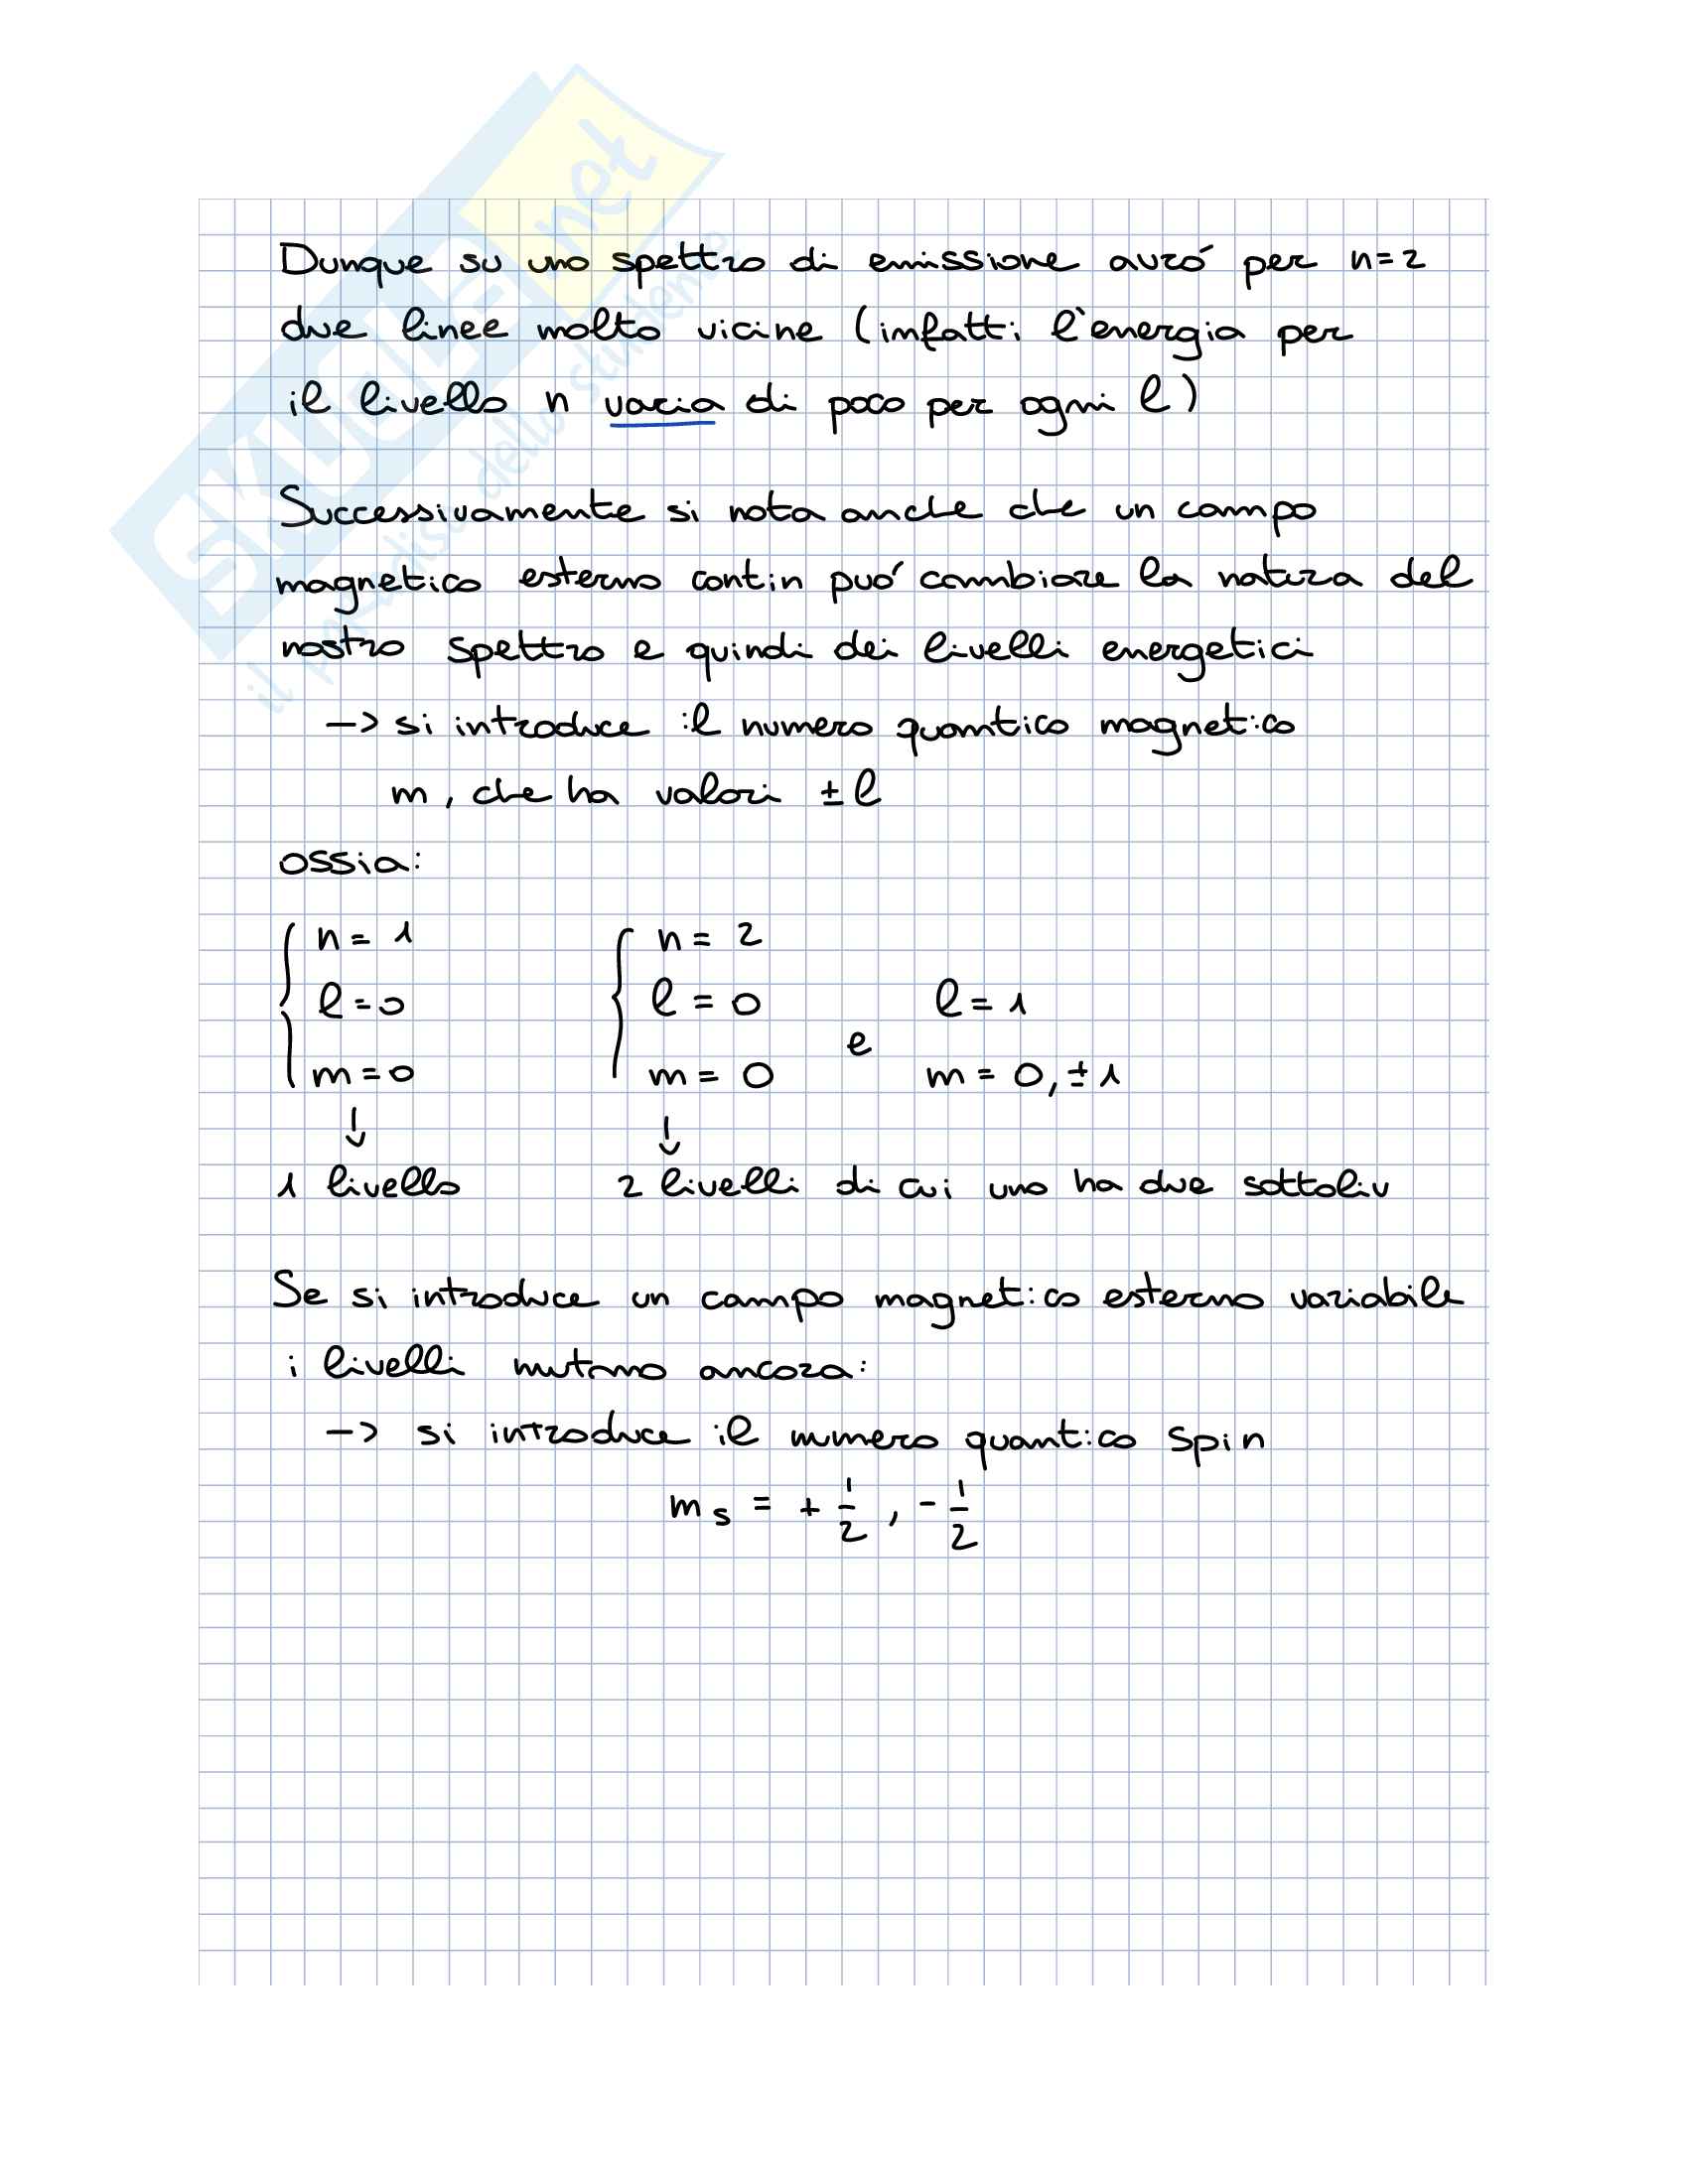 SKUOLA.net
il paradiso dello studente
Dunque su uno spettro di emissione avró per n=2
due linee molto vicine (infatti l'energia per
il livello n varia di poco per ogni l)
Successivamente si nota anche che un campo
magnetico esterno contin puó cambiare la natura del
nostro spettro e quindi dei livelli energetici
-> si introduce il numero quantico magnetico
m, che ha valori ± l
ossia:
n= 1 n= 2
l=0 l = 0 l= 1
e
m=0 m= 0 m= 0, ±1
↓ ↓
1 livello 2 livelli di cui uno ha due sottoliv
Se si introduce un campo magnetico esterno variabile
i livelli mutano ancora:
-> si introduce il numero quantico spin
ms = + 1/2 , - 1/2